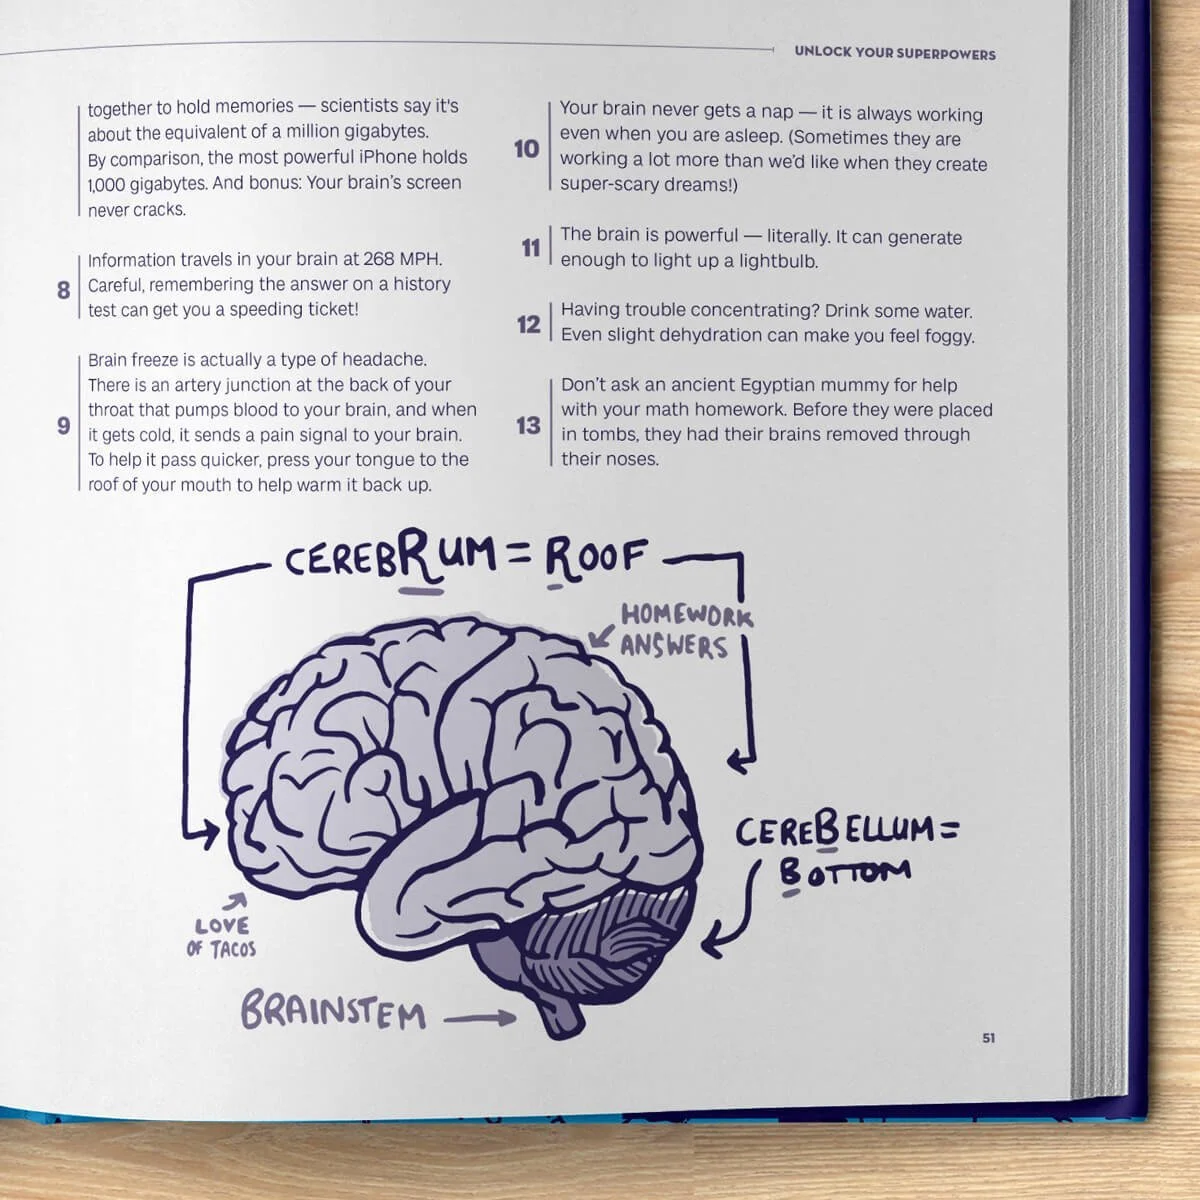 UNLOCK YOUR SUPERPOWERS
together to hold memories — scientists say it's
about the equivalent of a million gigabytes.
By comparison, the most powerful iPhone holds
1,000 gigabytes. And bonus: Your brain's screen
never cracks.
8
Information travels in your brain at 268 MPH.
Careful, remembering the answer on a history
test can get you a speeding ticket!
9
Brain freeze is actually a type of headache.
There is an artery junction at the back of your
throat that pumps blood to your brain, and when
it gets cold, it sends a pain signal to your brain.
To help it pass quicker, press your tongue to the
roof of your mouth to help warm it back up.
10
Your brain never gets a nap — it is always working
even when you are asleep. (Sometimes they are
working a lot more than we'd like when they create
super-scary dreams!)
11
The brain is powerful — literally. It can generate
enough to light up a lightbulb.
12
Having trouble concentrating? Drink some water.
Even slight dehydration can make you feel foggy.
13
Don't ask an ancient Egyptian mummy for help
with your math homework. Before they were placed
in tombs, they had their brains removed through
their noses.
CEREBRUM = ROOF
HOMEWORK
ANSWERS
CEREBELLUM =
BOTTOM
LOVE
OF TACOS
BRAINSTEM
51